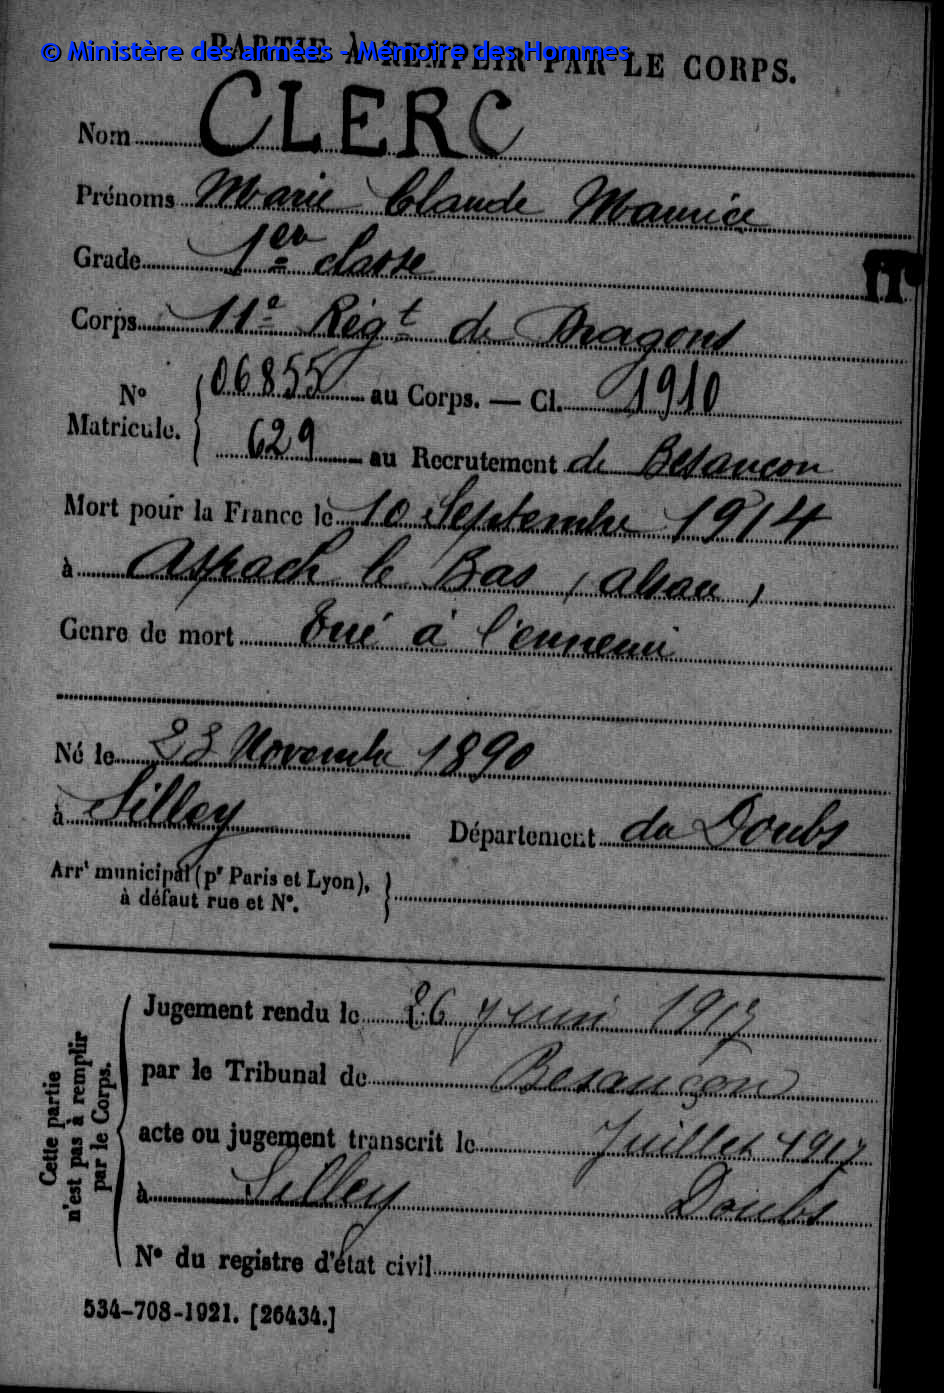 © Ministère des armées - Mémoire des Hommes
PARTIE À REMPLIR PAR LE CORPS.
Nom CLERC
Prénoms Marie Claude Maurice
Grade 1er classe
Corps 11e Régt de Dragons
N° Matricule. { 06855 au Corps. — Cl. 1910
629 au Recrutement de Besançon
Mort pour la France le 10 Septembre 1914
à Aspach le Bas (Alsace)
Genre de mort Tué à l'ennemi
Né le 23 Novembre 1890
à Silley Département du Doubs
Arrt municipal (pr Paris et Lyon), à défaut rue et N°.
Cette partie n'est pas à remplir par le Corps.
Jugement rendu le 26 Juin 1917
par le Tribunal de Besançon
acte ou jugement transcrit le Juillet 1917
à Silley Doubs
N° du registre d'état civil
534-708-1921. [26434.]